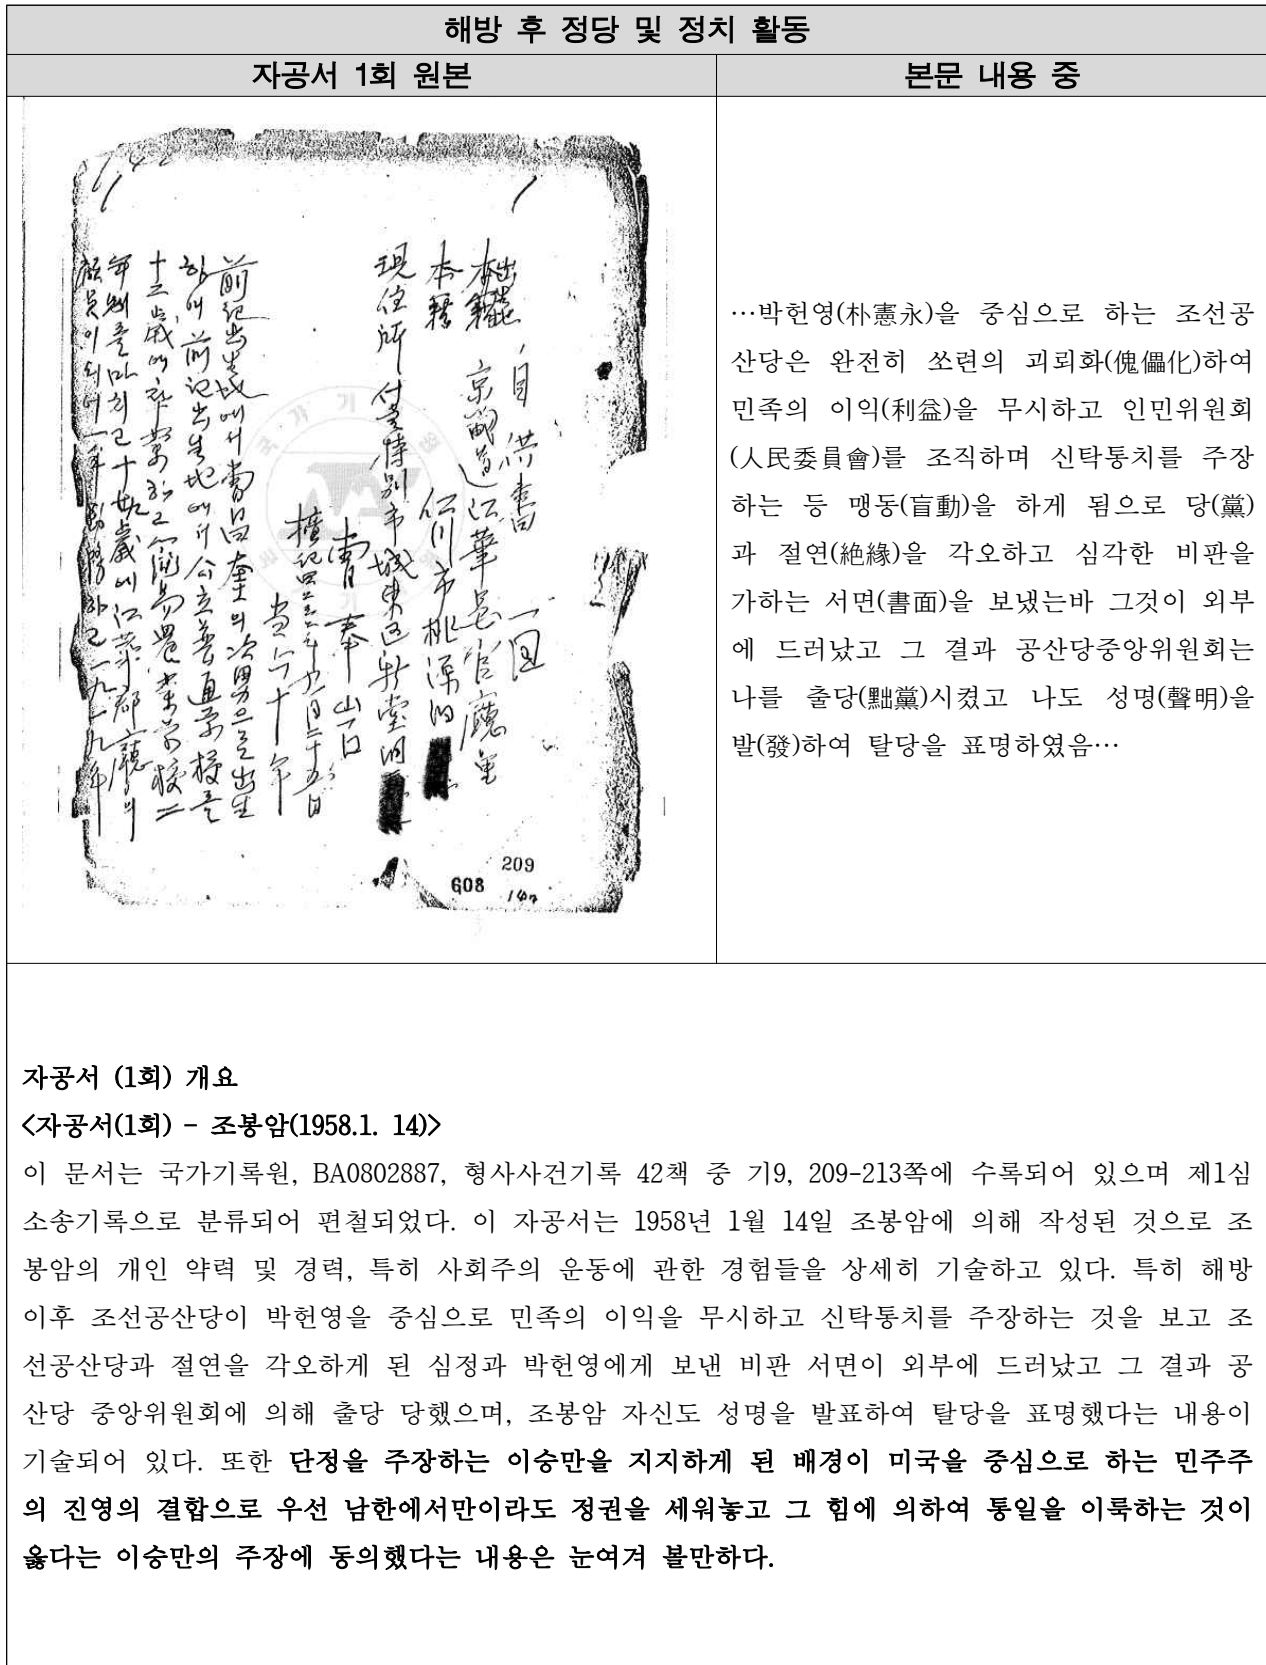 해방 후 정당 및 정치 활동
자공서 1회 원본
본문 내용 중
自供書 一回
出生地 京畿道江華邑官廳里
本籍
本籍 仁川市桃源洞
現住所 서울特別市城東区新堂洞
曺奉岩
檀紀四二三二年九月二十五日
当六十年
前記出生地에서 曺昌奎의 次男으로 出生
하여 前記出生地에서 公立普通学校를
十三歳에 卒業하고 簡易農業学校二
年制를 마치고 十九歳에 江華郡廳의
雇員이 되여 一年 勤務하고 一九一九年
209
608
…박헌영(朴憲永)을 중심으로 하는 조선공
산당은 완전히 쏘련의 괴뢰화(傀儡化)하여
민족의 이익(利益)을 무시하고 인민위원회
(人民委員會)를 조직하며 신탁통치를 주장
하는 등 맹동(盲動)을 하게 됨으로 당(黨)
과 절연(絶緣)을 각오하고 심각한 비판을
가하는 서면(書面)을 보냈는바 그것이 외부
에 드러났고 그 결과 공산당중앙위원회는
나를 출당(黜黨)시켰고 나도 성명(聲明)을
발(發)하여 탈당을 표명하였음…
자공서 (1회) 개요
<자공서(1회) - 조봉암(1958.1. 14)>
이 문서는 국가기록원, BA0802887, 형사사건기록 42책 중 기9, 209-213쪽에 수록되어 있으며 제1심
소송기록으로 분류되어 편철되었다. 이 자공서는 1958년 1월 14일 조봉암에 의해 작성된 것으로 조
봉암의 개인 약력 및 경력, 특히 사회주의 운동에 관한 경험들을 상세히 기술하고 있다. 특히 해방
이후 조선공산당이 박헌영을 중심으로 민족의 이익을 무시하고 신탁통치를 주장하는 것을 보고 조
선공산당과 절연을 각오하게 된 심정과 박헌영에게 보낸 비판 서면이 외부에 드러났고 그 결과 공
산당 중앙위원회에 의해 출당 당했으며, 조봉암 자신도 성명을 발표하여 탈당을 표명했다는 내용이
기술되어 있다. 또한 단정을 주장하는 이승만을 지지하게 된 배경이 미국을 중심으로 하는 민주주
의 진영의 결합으로 우선 남한에서만이라도 정권을 세워놓고 그 힘에 의하여 통일을 이룩하는 것이
옳다는 이승만의 주장에 동의했다는 내용은 눈여겨 볼만하다.